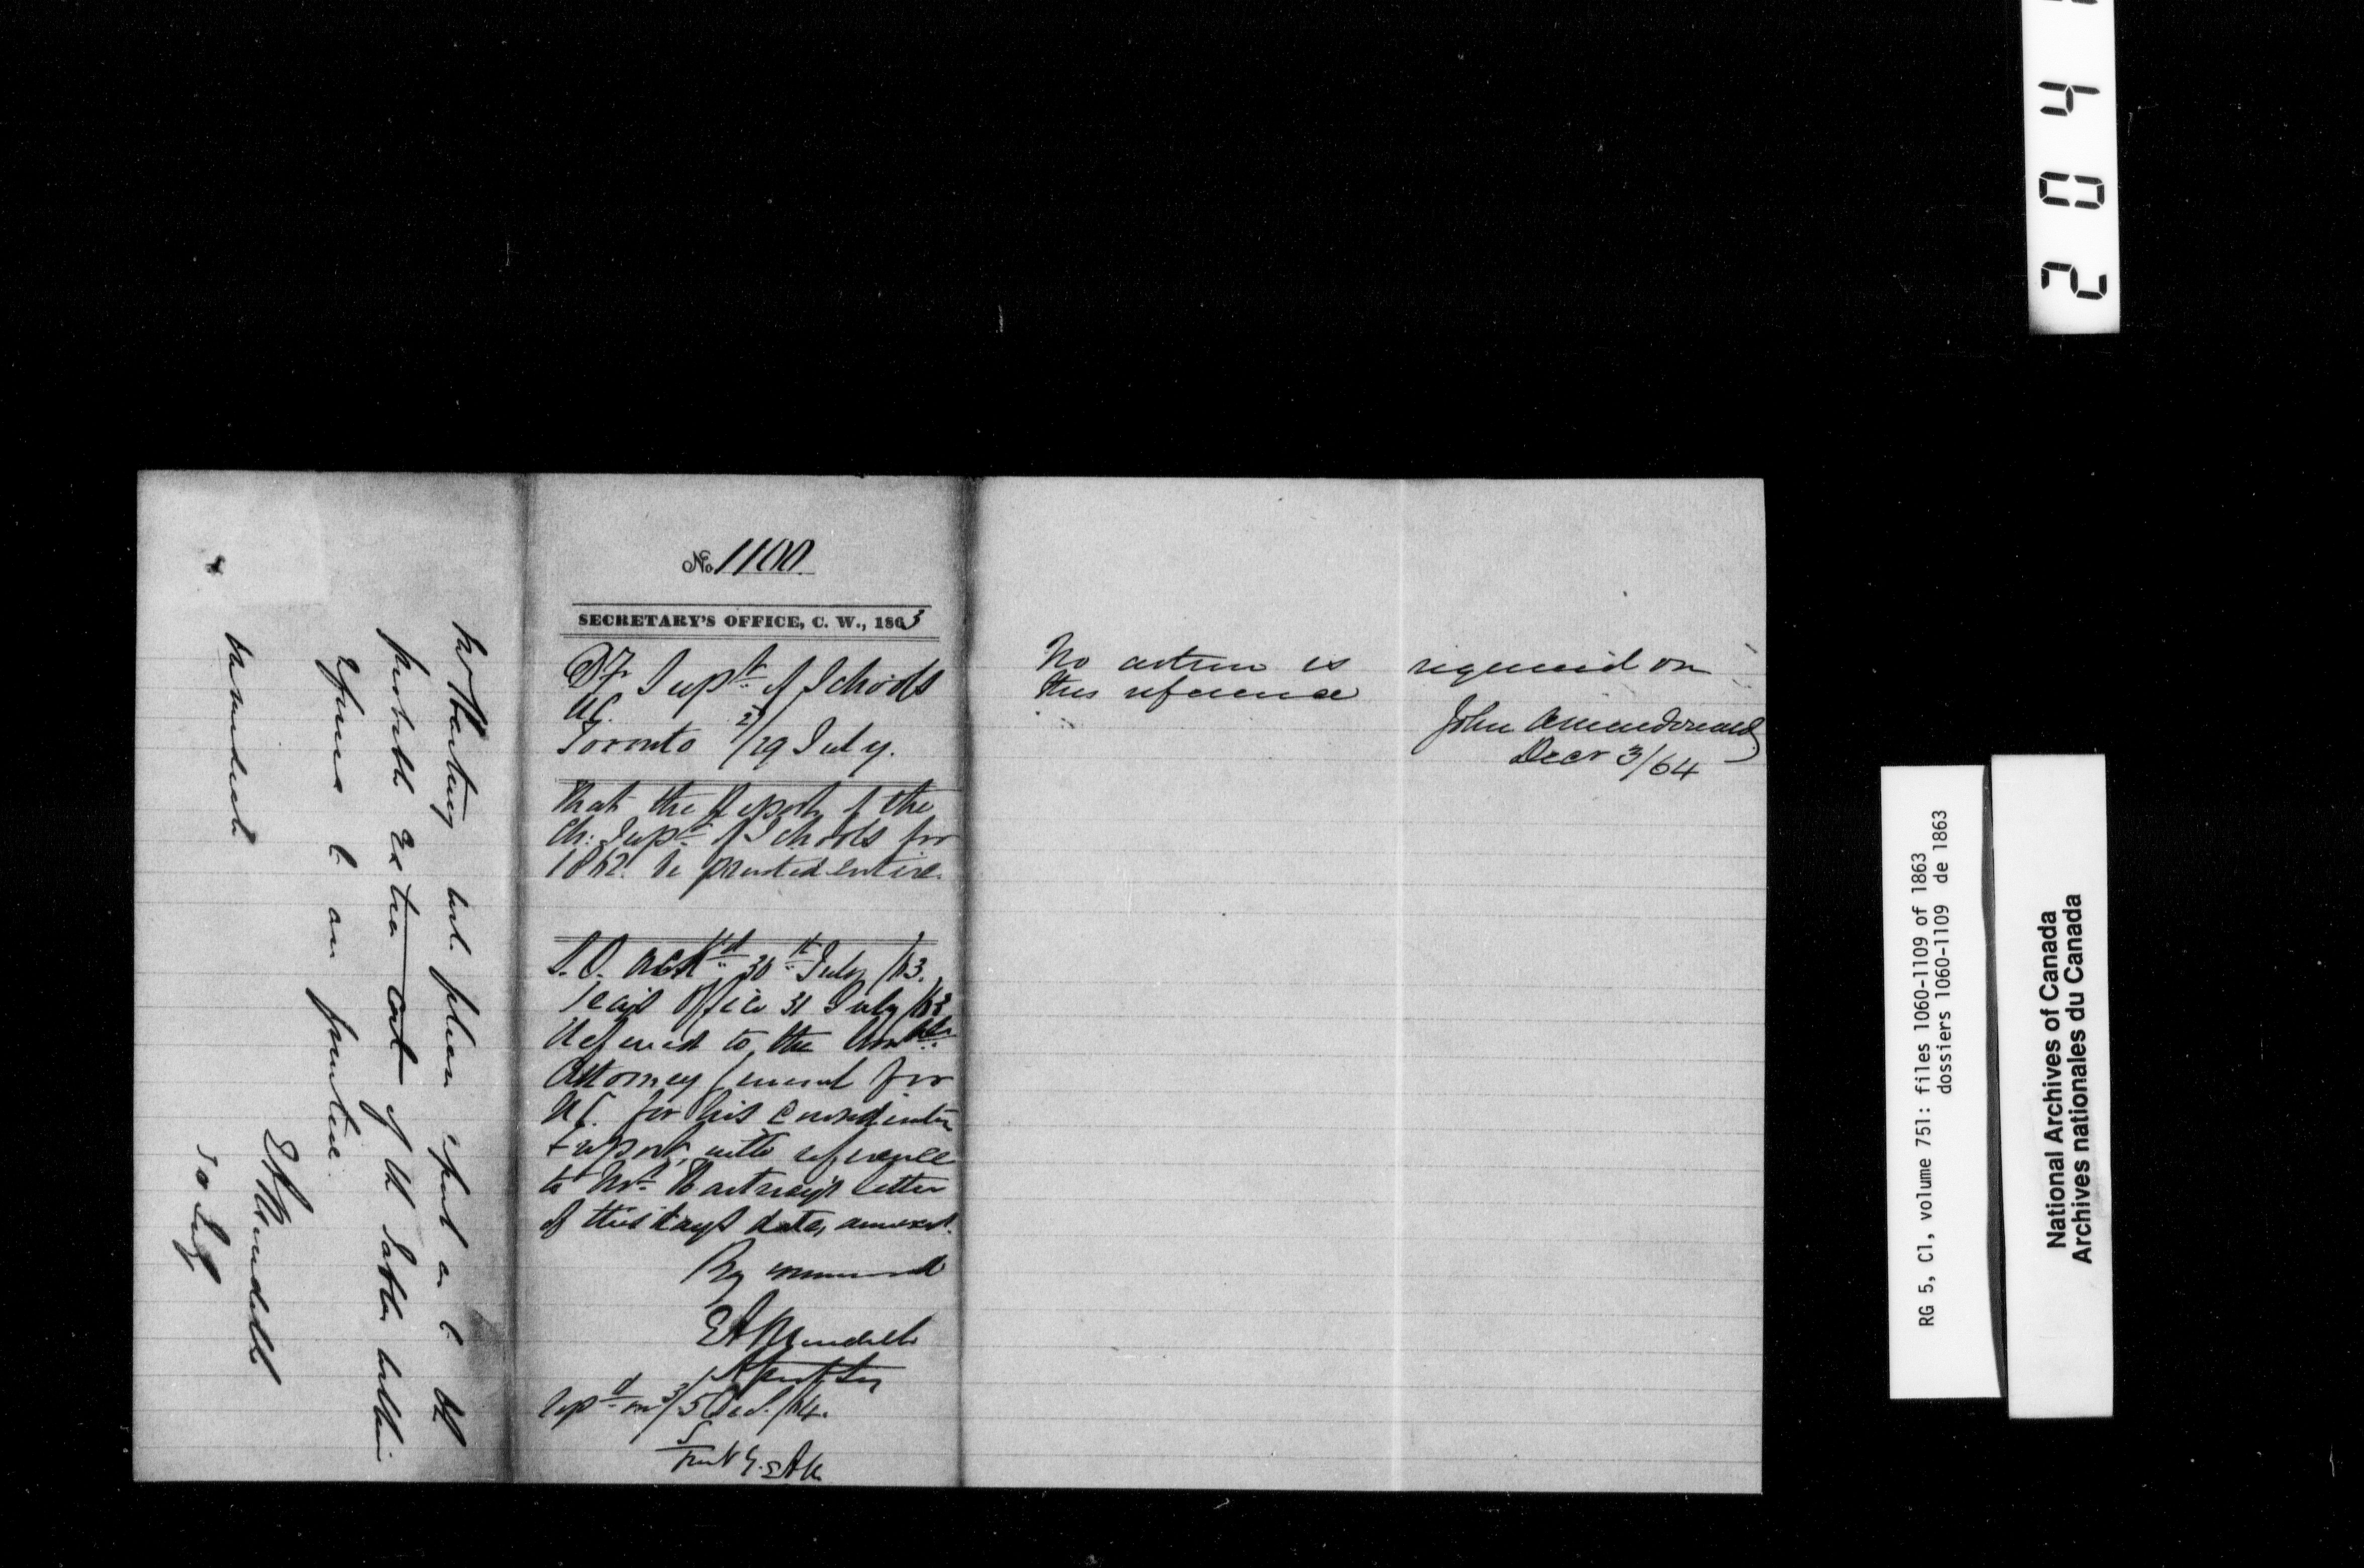 204
Mr Hartney will please report as to the
probable extra cost of the Tables within
referred to as printed.
EAMeredith
30 July
No. 1100
SECRETARY'S OFFICE, C. W., 1863
Dy Supt. of Schools
U.C.
Toronto 29 July.
That the Report of the
Ch: Supt. of Schools for
1862 be printed entire.
S.O. ackd. 30th July /63.
Secy's Office 31 July /63
Referred to the Honble
Attorney General for
U.C. for his consideration
& report, with reference
to Mr. Hartney's letter
of this day's date, annexed.
By command
EAMeredith
Asst Secy
Repd. on 3/5 Dec. /64.
EAM
No action is required on
this reference
John A Macdonald
Decr 3/64
RG 5, C1, volume 751: files 1060-1109 of 1863
dossiers 1060-1109 de 1863
National Archives of Canada
Archives nationales du Canada